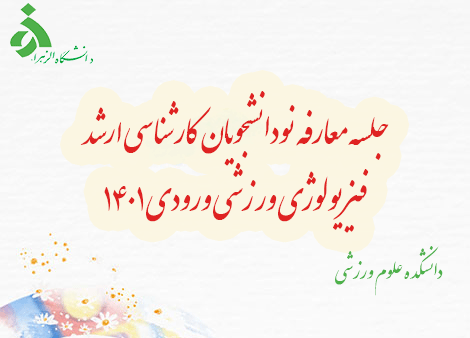 دانشگاه الزهرا
جلسه معارفه نودانشجویان کارشناسی ارشد
فیزیولوژی ورزشی ورودی ۱۴۰۱
دانشکده علوم ورزشی